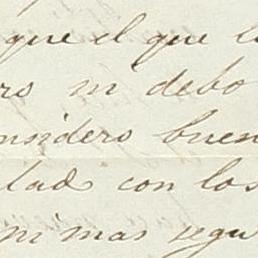 que el que l
ro ni debo
nsidero buen
dad con los
ni mas segu